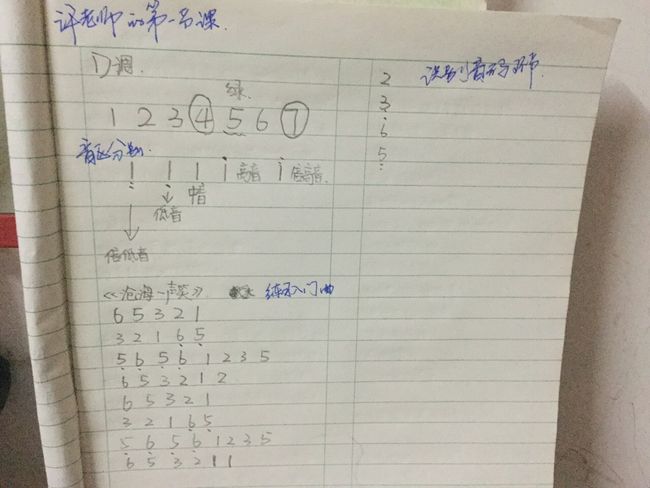 许老师的第一节课
D调.
绿
1 2 3 ④ 5 6 ⑦
音区分别.
1 1 1 i 高音 i 倍高音
中音
低音
倍低音
《沧海一声笑》 练习入门曲
6 5 3 2 1
3 2 1 6 5
5 6 5 6 1 2 3 5
6 5 3 2 1 2
6 5 3 2 1
3 2 1 6 5
5 6 5 6 1 2 3 5
6 5 3 2 1 1
识别音码环节.
2
3
6
5